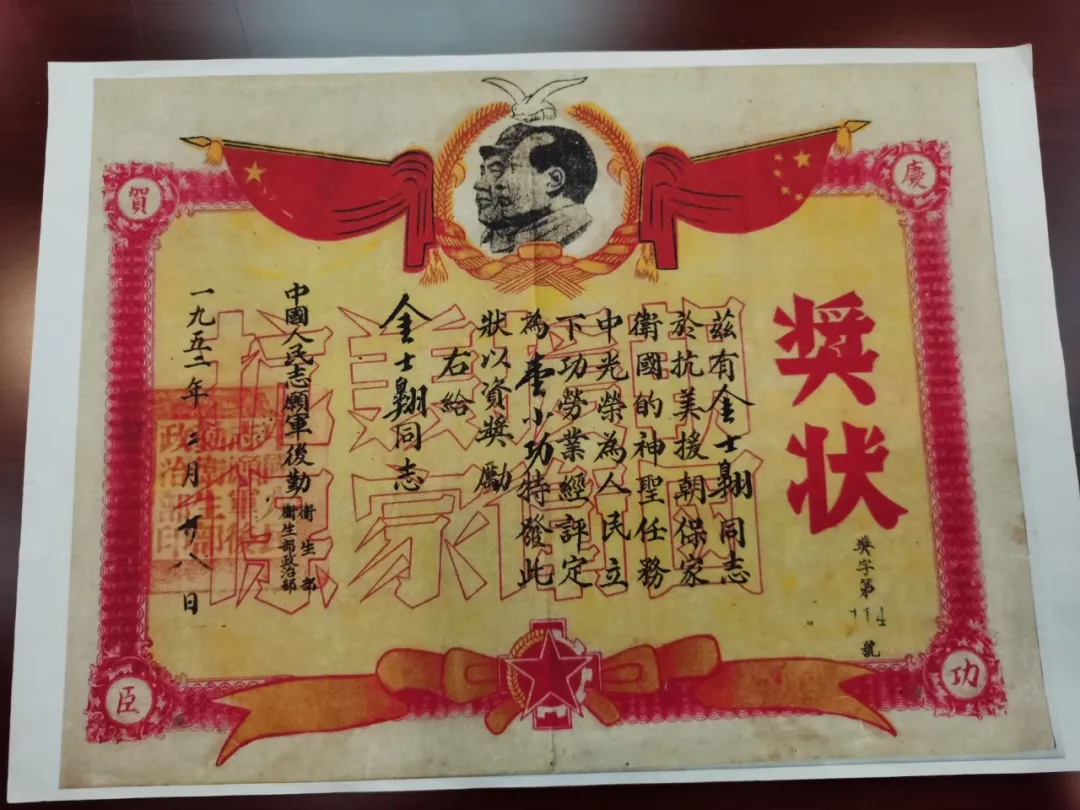 慶
賀
功
臣
獎狀
獎字第
114
號
茲有金士翱同志
於抗美援朝保家
衛國的神聖任務
中光榮為人民立
下功勞業經評定
為壹小功特發此
狀以資獎勵
右給
金士翱同志
中國人民志願軍後勤
衛生部
衛生部政治部
一九五二年二月廿八日
抗美援朝
保家衛國